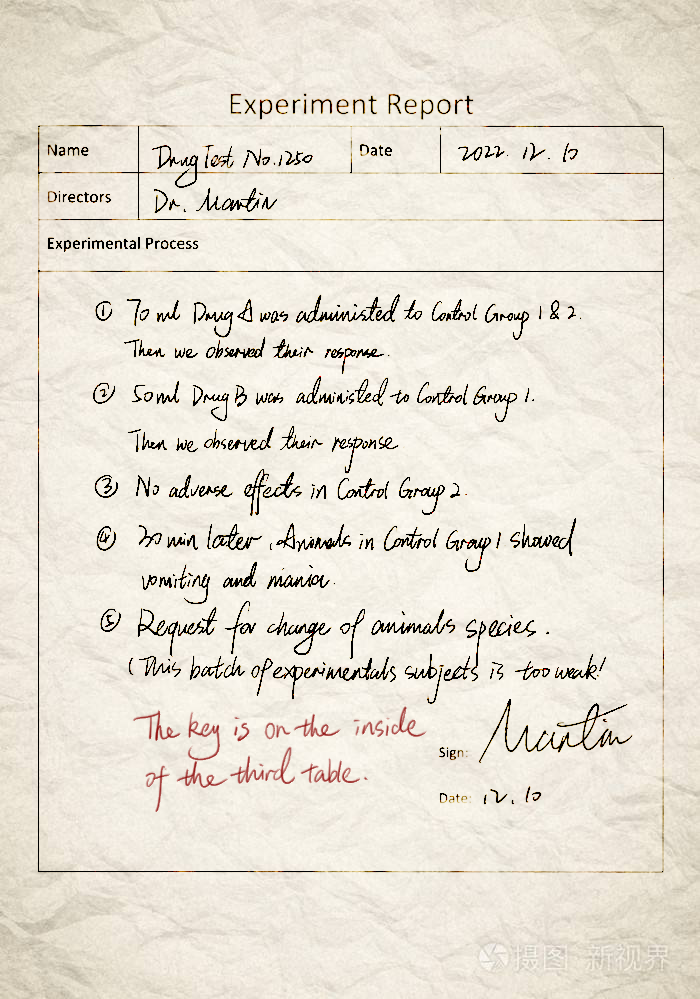 Experiment Report
Name Drug Test No.1250 Date 2022. 12. 10
Directors Dr. Martin
Experimental Process
① 70 ml Drug A was administed to Control Group 1 & 2.
Then we observed their response.
② 50ml Drug B was administed to Control Group 1.
Then we observed their response
③ No adverse effects in Control Group 2.
④ 30 min later, Animals in Control Group 1 showed
vomiting and mania.
⑤ Request for change of animals species.
(This batch of experimentals subjects is too weak!
The key is on the inside
of the third table.
Sign: Martin
Date: 12. 10
摄图 新视界